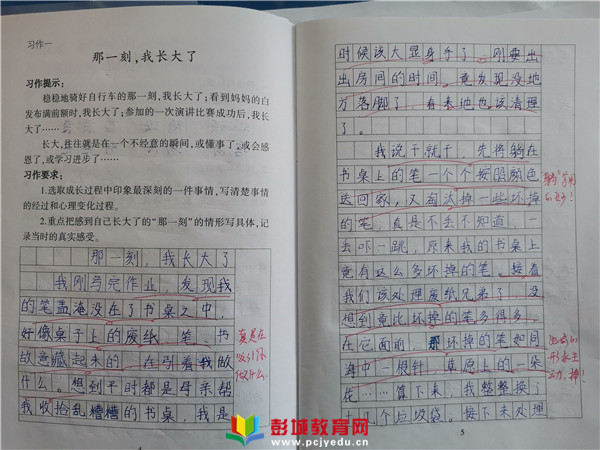 习作一
那一刻,我长大了
习作提示:
稳稳地骑好自行车的那一刻,我长大了;看到妈妈的白
发布满前额时,我长大了;参加的一次演讲比赛成功后,我长
大了……
长大,往往就是在一个不经意的瞬间,或懂事了,或会感
恩了,或学习进步了……
习作要求:
1.选取成长过程中印象最深刻的一件事情,写清楚事情
的经过和心理变化过程。
2.重点把感到自己长大了的“那一刻”的情形写具体,记
录当时的真实感受。
那一刻,我长大了
我刚写完作业,发现我
的笔盖淹没在了书桌之中,
好像桌子上的废纸、笔、书
故意藏起来的,在引着我做
什么。想到平时都是母亲帮
我收拾乱糟糟的书桌,我是
真是在
吸引你
做什么
时候该大显身手了。刚要出
出房间的时间,竟发现没地
方落脚了,看来地也该清理
了。
我说干就干,先将躺在
书桌上的笔一个个按照颜色
送回家,又淘汰掉一些坏掉
的笔,真是不丢不知道,一
丢吓一跳,原来我的书桌上
竟有这么多坏掉的笔。接着
我们该处理废纸兄弟了,没
想到竟比坏掉的笔多得多,
在它面前,那坏掉的笔如同
海中一根针,草原上的一朵
花……算下来,我整整换了
个垃圾袋。接下来处理
5
彭城教育网
www.pcjyedu.cn